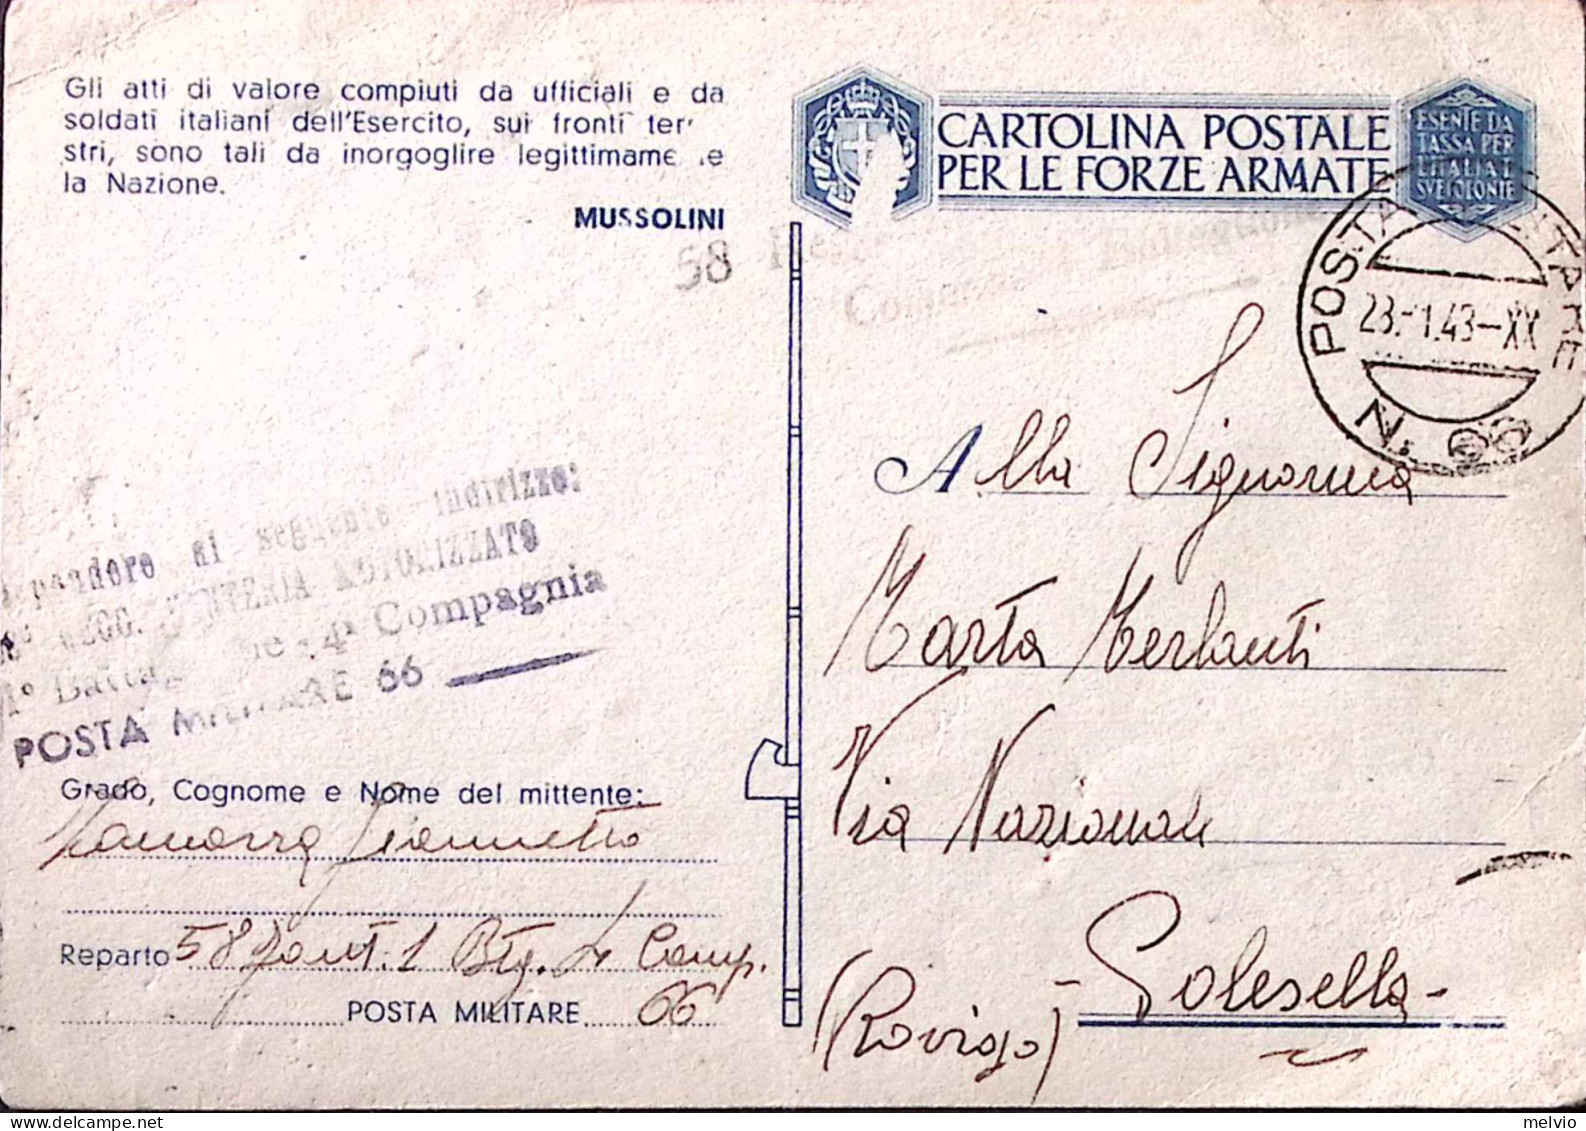 Gli atti di valore compiuti da ufficiali e da
soldati italiani dell'Esercito, sui fronti ter
stri, sono tali da inorgoglire legittimame e
la Nazione.
MUSSOLINI
58
CARTOLINA POSTALE
PER LE FORZE ARMATE
ESENTE DA
TASSA PER
L'ITALIA E
SVE COLONIE
POSTA MILITARE
23.-1.43-XX
N. 66
al seguente indirizzo:
4ª Compagnia
POSTA MILITARE 66
Alla Signorina
Marta Merlanti
Via Nazionale
- Polesella -
(Rovigo)
Grado, Cognome e Nome del mittente:
Giannetto
Reparto 58 Fant. 1 Btg. 4 Comp.
POSTA MILITARE 66
melvio